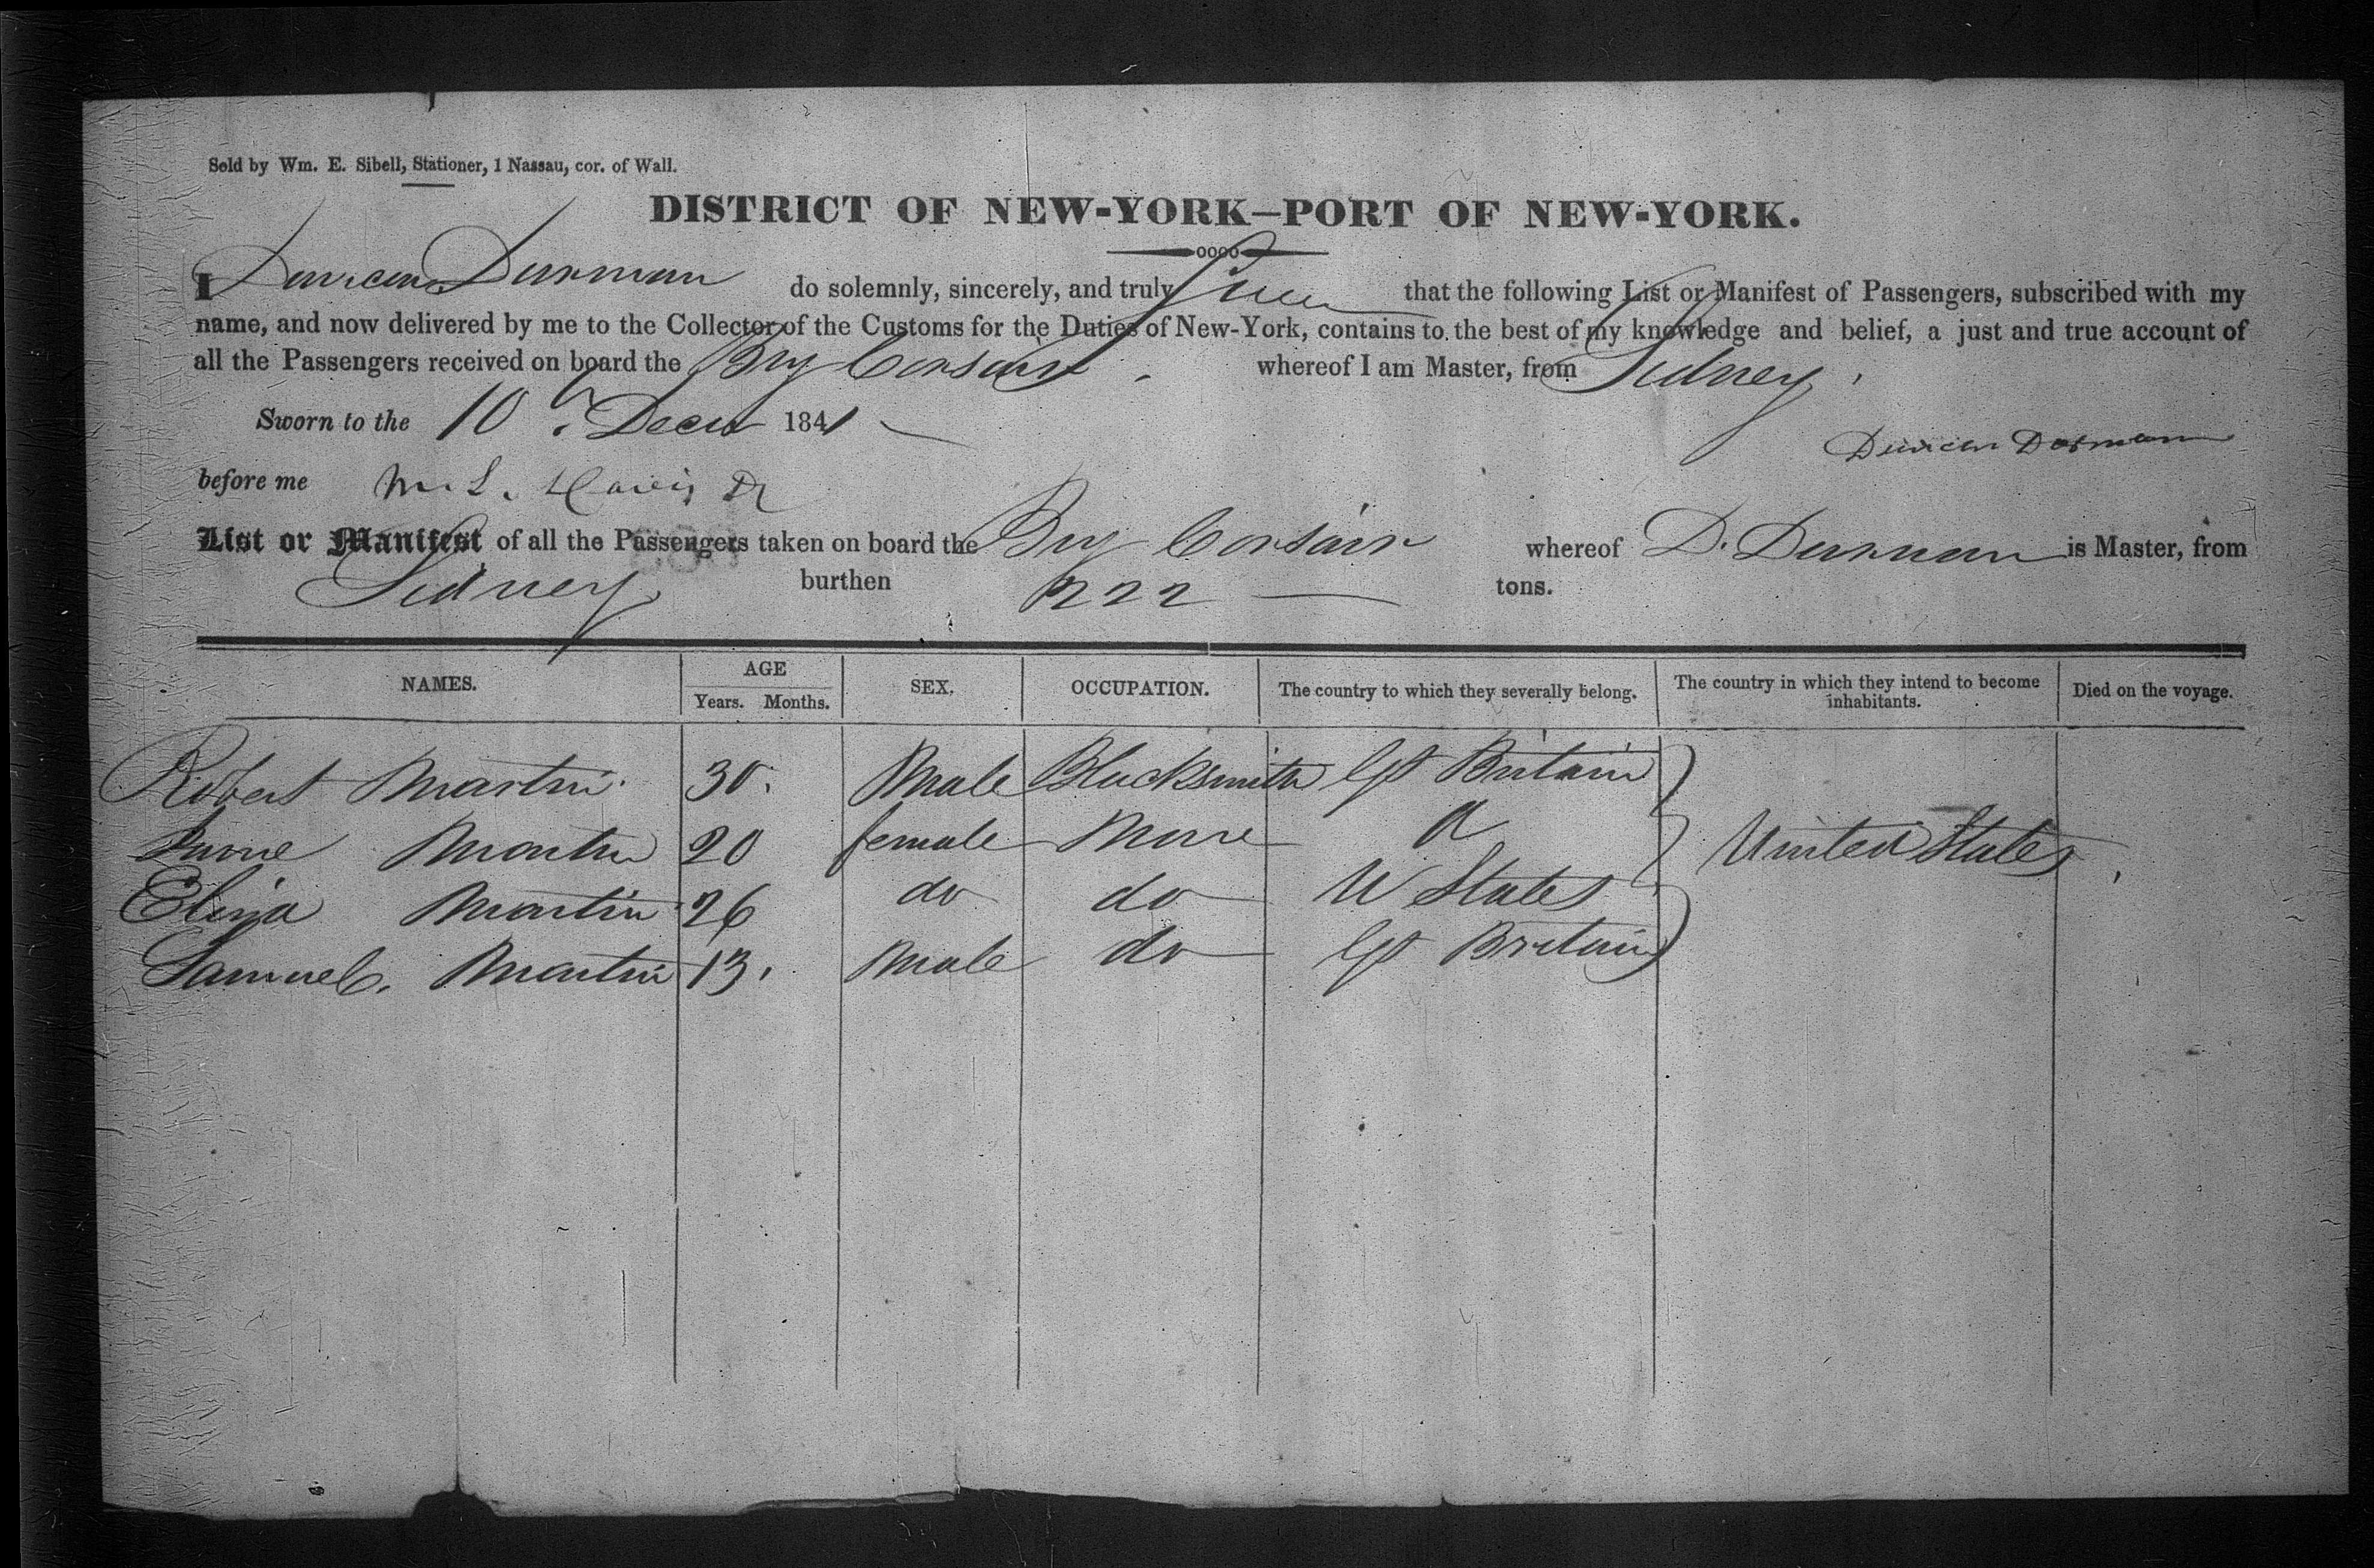 Sold by Wm. E. Sibell, Stationer, 1 Nassau, cor. of Wall.
DISTRICT OF NEW-YORK—PORT OF NEW-YORK.
I Duncan Dorman do solemnly, sincerely, and truly Swear that the following List or Manifest of Passengers, subscribed with my
name, and now delivered by me to the Collector of the Customs for the Duties of New-York, contains to the best of my knowledge and belief, a just and true account of
all the Passengers received on board the Brig Corsair whereof I am Master, from Sidney
Sworn to the 10 Decr 1841
Duncan Dorman
before me M. L. Davis
List or Manifest of all the Passengers taken on board the Brig Corsair whereof D. Dorman is Master, from
Sidney burthen 222 tons.
NAMES. AGE Years. Months. SEX. OCCUPATION. The country to which they severally belong. The country in which they intend to become inhabitants. Died on the voyage.
Robert Martin 30 Male Blacksmith Gt Britain
Martin 20 female None United States
Eliza Martin 26 do do U States
Samuel Martin 13 Male do Gt Britain